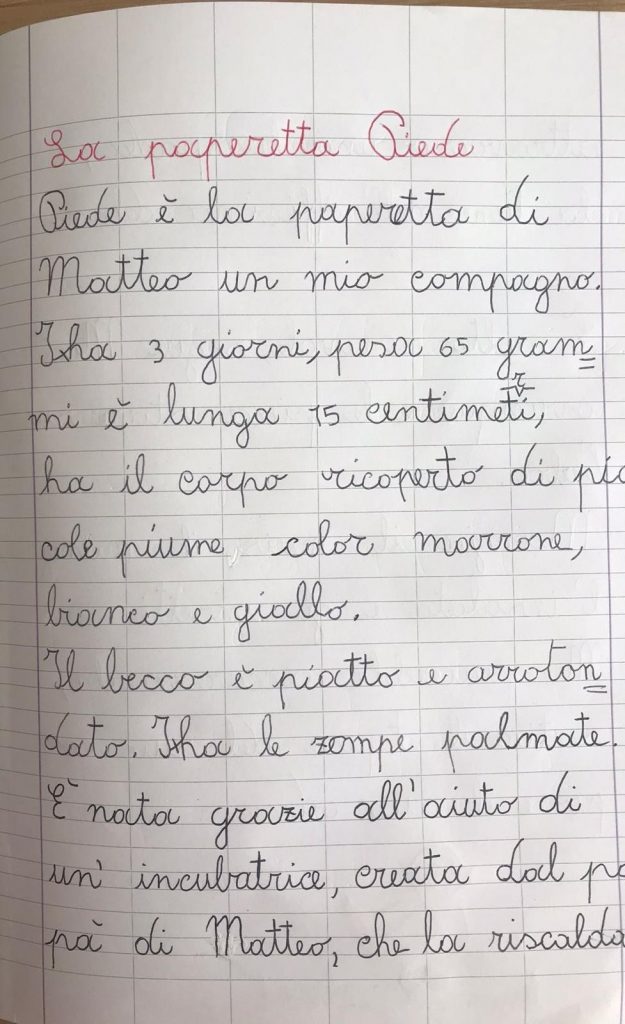 La paperetta Piede
Piede è la paperetta di
Matteo un mio compagno.
Ha 3 giorni, pesa 65 gram=
mi è lunga 15 centimetri,
ha il corpo ricoperto di pic
cole piume, color marrone,
bianco e giallo.
Il becco è piatto e arroton=
dato. Ha le zampe palmate.
È nata grazie all'aiuto di
un'incubatrice, creata dal pa
pà di Matteo, che la riscalda